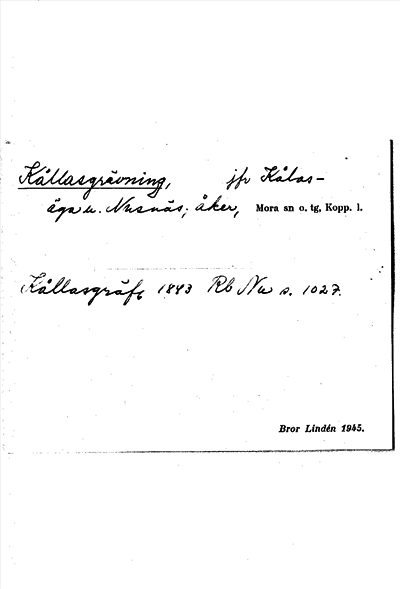 Kållasgrävning, jfr Kålas-
äga u. Nusnäs; åker, Mora sn o. tg, Kopp. l.
Kållasgräfv 1843 Rb Nu s. 1027.
Bror Lindén 1945.